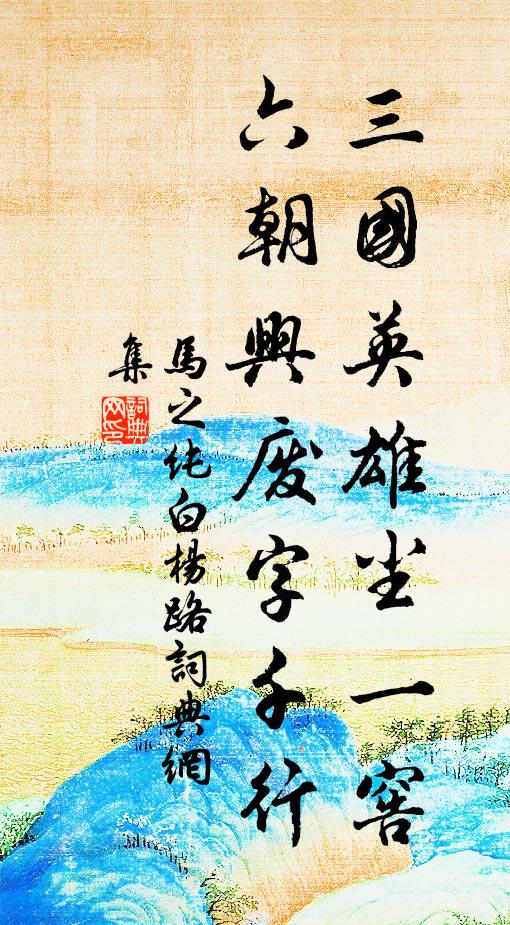 三國英雄尘一窖
六朝興廢字千行
馬之纯白楊路詞典網
集
詞典网印